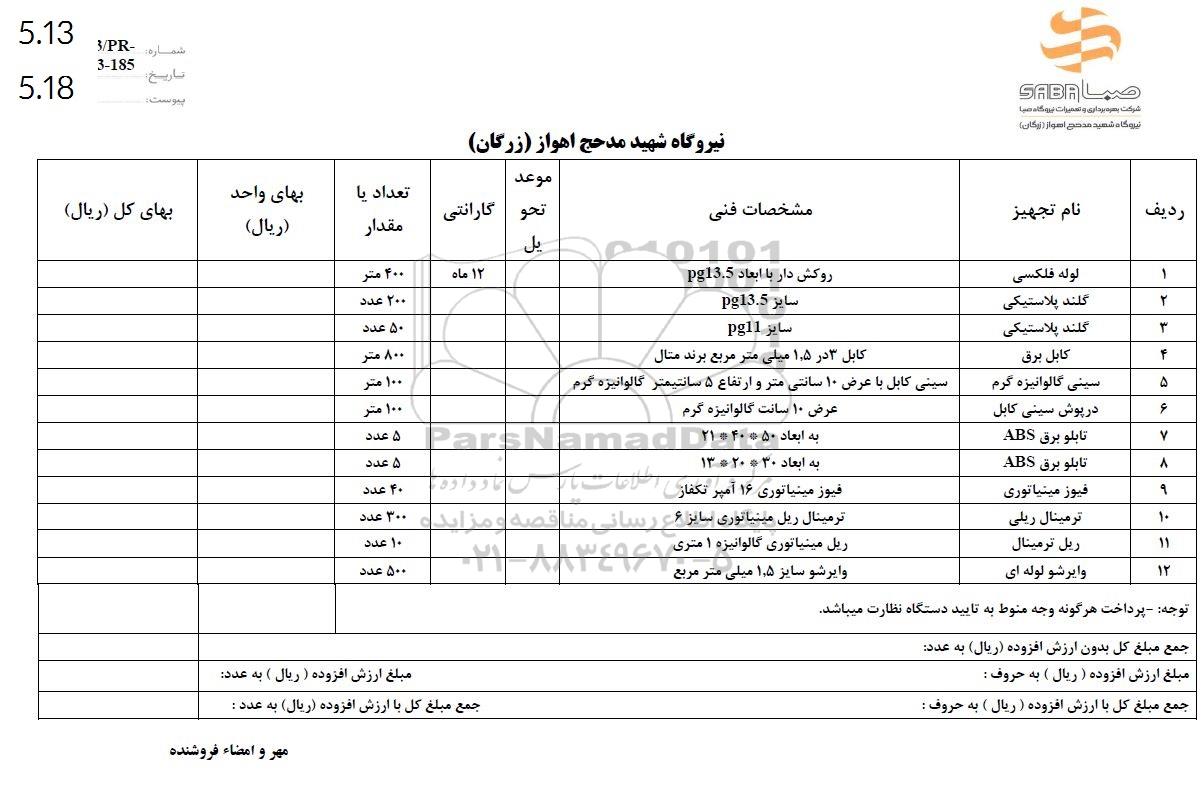 5.13
5.18
شماره: 3/PR-
3-185
تاریخ:
پیوست:
صبا SABA
شرکت بهره‌برداری و تعمیرات نیروگاه صبا
نیروگاه شهید مدحج اهواز (زرگان)
نیروگاه شهید مدحج اهواز (زرگان)
ردیف نام تجهیز مشخصات فنی موعد تحویل گارانتی تعداد یا مقدار بهای واحد (ریال) بهای کل (ریال)
۱ لوله فلکسی روکش دار با ابعاد pg13.5 ۱۲ ماه ۴۰۰ متر
۲ گلند پلاستیکی سایز pg13.5 ۲۰۰ عدد
۳ گلند پلاستیکی سایز pg11 ۵۰ عدد
۴ کابل برق کابل ۳در ۱,۵ میلی متر مربع برند متال ۸۰۰ متر
۵ سینی گالوانیزه گرم سینی کابل با عرض ۱۰ سانتی متر و ارتفاع ۵ سانتیمتر گالوانیزه گرم ۱۰۰ متر
۶ درپوش سینی کابل عرض ۱۰ سانت گالوانیزه گرم ۱۰۰ متر
۷ تابلو برق ABS به ابعاد ۵۰ * ۴۰ * ۲۱ ۵ عدد
۸ تابلو برق ABS به ابعاد ۳۰ * ۲۰ * ۱۳ ۵ عدد
۹ فیوز مینیاتوری فیوز مینیاتوری ۱۶ آمپر تکفاز ۴۰ عدد
۱۰ ترمینال ریلی ترمینال ریل مینیاتوری سایز ۶ ۳۰۰ عدد
۱۱ ریل ترمینال ریل مینیاتوری گالوانیزه ۱ متری ۱۰ عدد
۱۲ وایرشو لوله ای وایرشو سایز ۱,۵ میلی متر مربع ۵۰۰ عدد
توجه: -پرداخت هرگونه وجه منوط به تایید دستگاه نظارت میباشد.
جمع مبلغ کل بدون ارزش افزوده (ریال) به عدد:
مبلغ ارزش افزوده ( ریال ) به حروف : مبلغ ارزش افزوده ( ریال ) به عدد:
جمع مبلغ کل با ارزش افزوده ( ریال ) به حروف : جمع مبلغ کل با ارزش افزوده (ریال) به عدد :
مهر و امضاء فروشنده
ParsNamadData
مرکز فرآوری اطلاعات پارس نماد داده ها
پایگاه اطلاع رسانی مناقصه و مزایده
۰۲۱-۸۸۳۴۹۶۷۰-۵